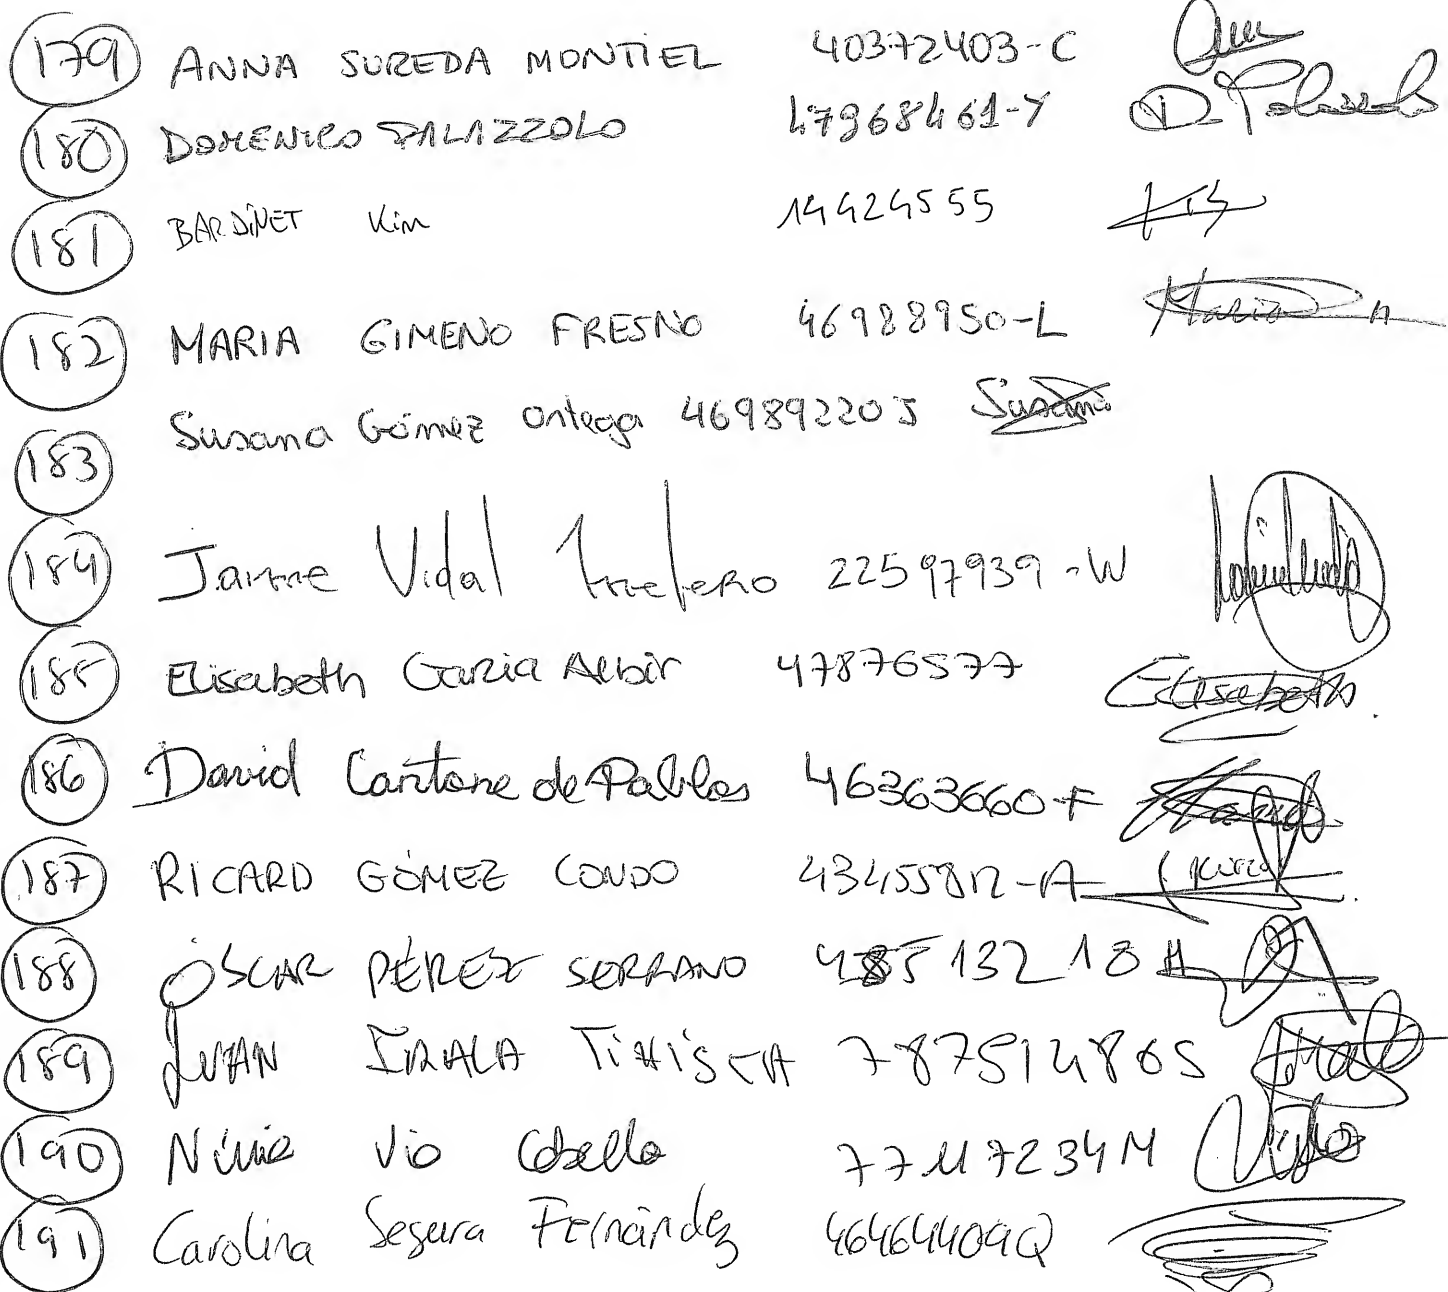 179 ANNA SUREDA MONTIEL 40372403-C
180 DOMENICO PALAZZOLO 47968461-Y D. Palazzolo
181 BARDINET Kim 14424555
182 MARIA GIMENO FRESNO 46988950-L Maria
183 Susana Gómez Ortega 46989220J Susana
184 Jaume Vidal 22597939-W
185 Elisabeth Garzia Albir 47876577 Elisabeth
186 David Cantone de Pablos 46363660-F
187 RICARD GÓMEZ CONDO 43455812-A
188 ÓSCAR PÉREZ SERRANO 48513218H
189 JUAN IRALA 78751486S
190 Núria Vio 77117234M
191 Carolina Segura Fernández 46464409Q